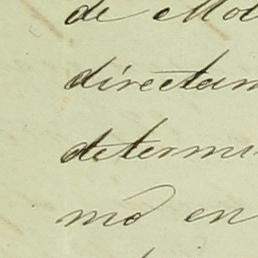 de Mol
directam
determi
mo en